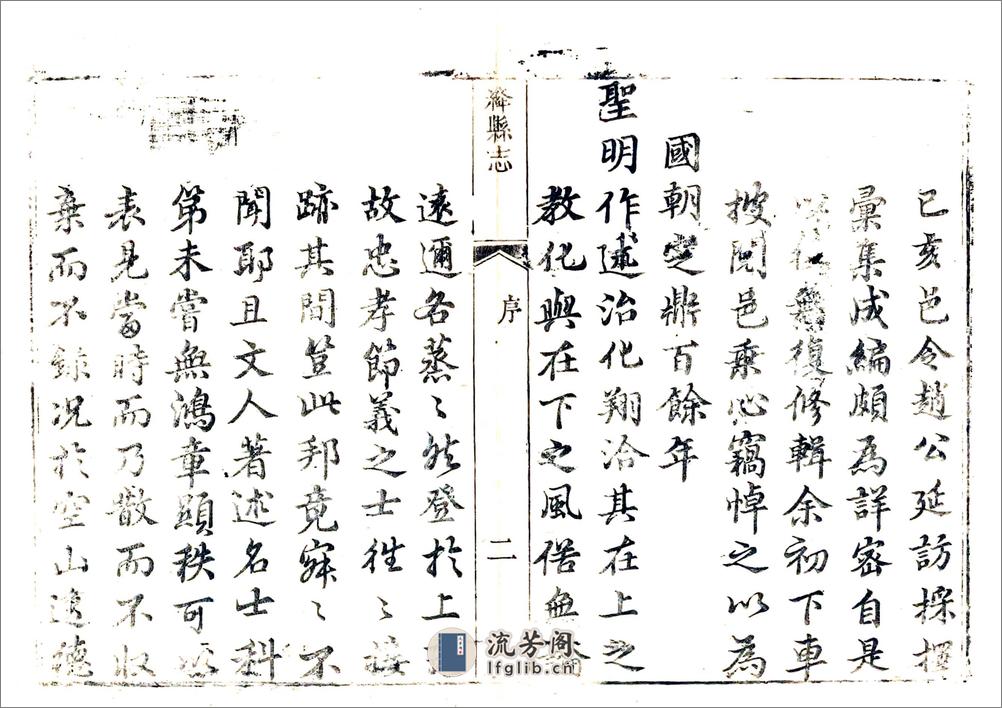 已亥邑令趙公延訪採摭
彙集成編頗為詳密自是
復修輯余初下車
披閱邑乗心竊悼之以為
國朝定鼎百餘年
聖明作述治化翔洽其在上之
教化與在下之風俗無
絳縣志
序
二
遠邇各蒸〻然登於上
故忠孝節義之士徃〻接
跡其間豈此邦竟寂〻不
聞耶且文人著述名士科
第未嘗無鴻章顯秩可以
表見當時而乃散而不收
棄而不錄况於空山
流芳阁
lfglib.cn